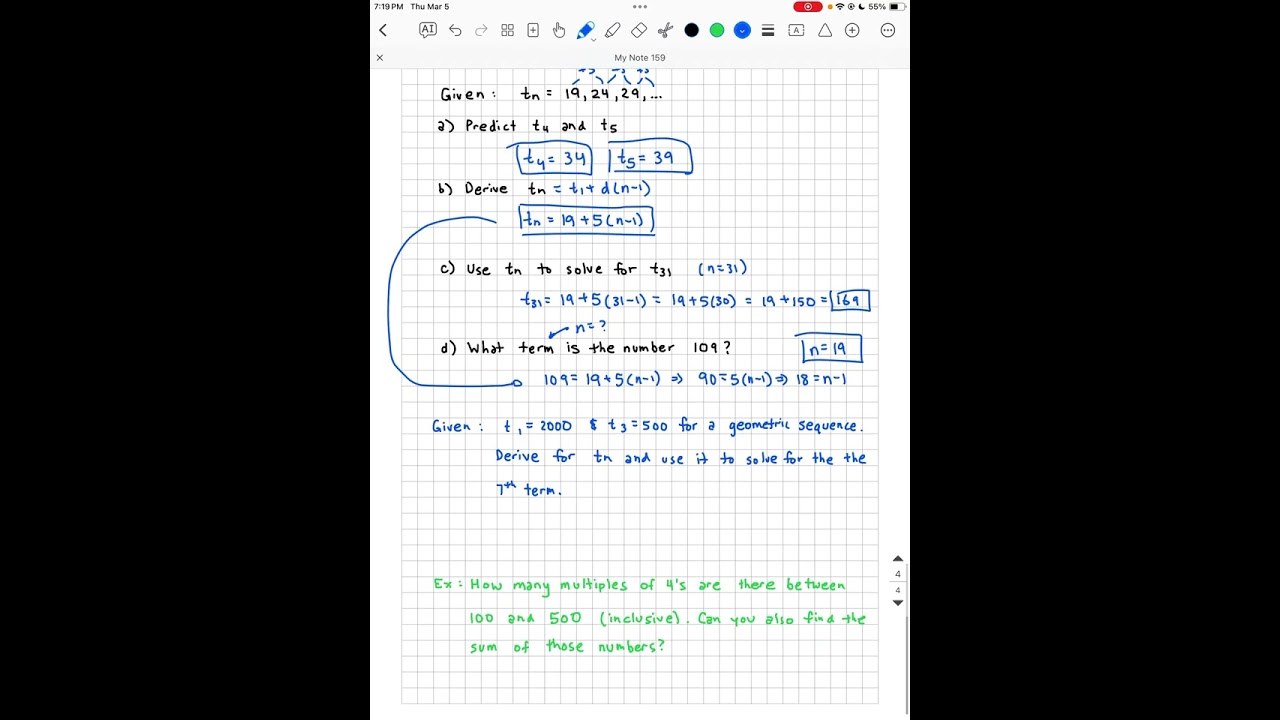 7:19 PM Thu Mar 5
55%
My Note 159
Given: tn = 19, 24, 29, ...
a) Predict t4 and t5
t4 = 34 t5 = 39
b) Derive tn = t1 + d(n-1)
tn = 19 + 5(n-1)
c) Use tn to solve for t31 (n=31)
t31 = 19 + 5(31-1) = 19 + 5(30) = 19 + 150 = 169
n = ?
d) What term is the number 109? n = 19
109 = 19 + 5(n-1) ⇒ 90 = 5(n-1) ⇒ 18 = n-1
Given: t1 = 2000 & t3 = 500 for a geometric sequence.
Derive for tn and use it to solve for the the
7th term.
4
4
Ex: How many multiples of 4's are there between
100 and 500 (inclusive). Can you also find the
sum of those numbers?